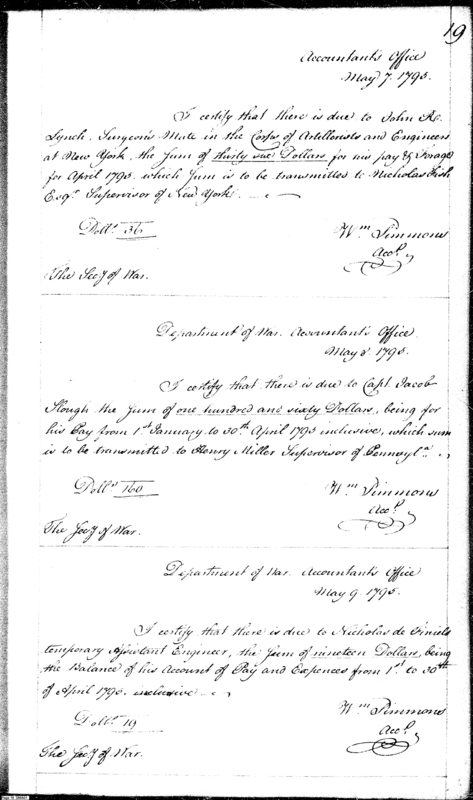 19
Accountant's Office
May 7. 1795.
I certify that there is due to John R.
Lynch. Surgeon's Mate in the Corps of Artillerists and Engineers
at New York, the Sum of thirty six Dollars for his pay & Forage
for April 1795. which Sum is to be transmitted to Nicholas Fish
Esqr. Supervisor of New York.
Dolls. 36
Wm Simmons
Acct.
The Secy of War.
Department of War. Accountant's Office
May 8. 1795.
I certify that there is due to Capt. Jacob
Slough the Sum of one hundred and sixty Dollars, being for
his Pay from 1st January to 30th April 1795 inclusive, which sum
is to be transmitted to Henry Miller Supervisor of Pennsyla.
Dolls 160
Wm Simmons
Acct.
The Secy of War.
Department of War. Accountant's Office
May 9. 1795.
I certify that there is due to Nicholas de Finiels
temporary Assistant Engineer, the Sum of nineteen Dollars, being
the Balance of his Account of Pay and Expences from 1st to 30th
of April 1795. inclusive
Dolls. 19
Wm Simmons
Acct.
The Secy of War.